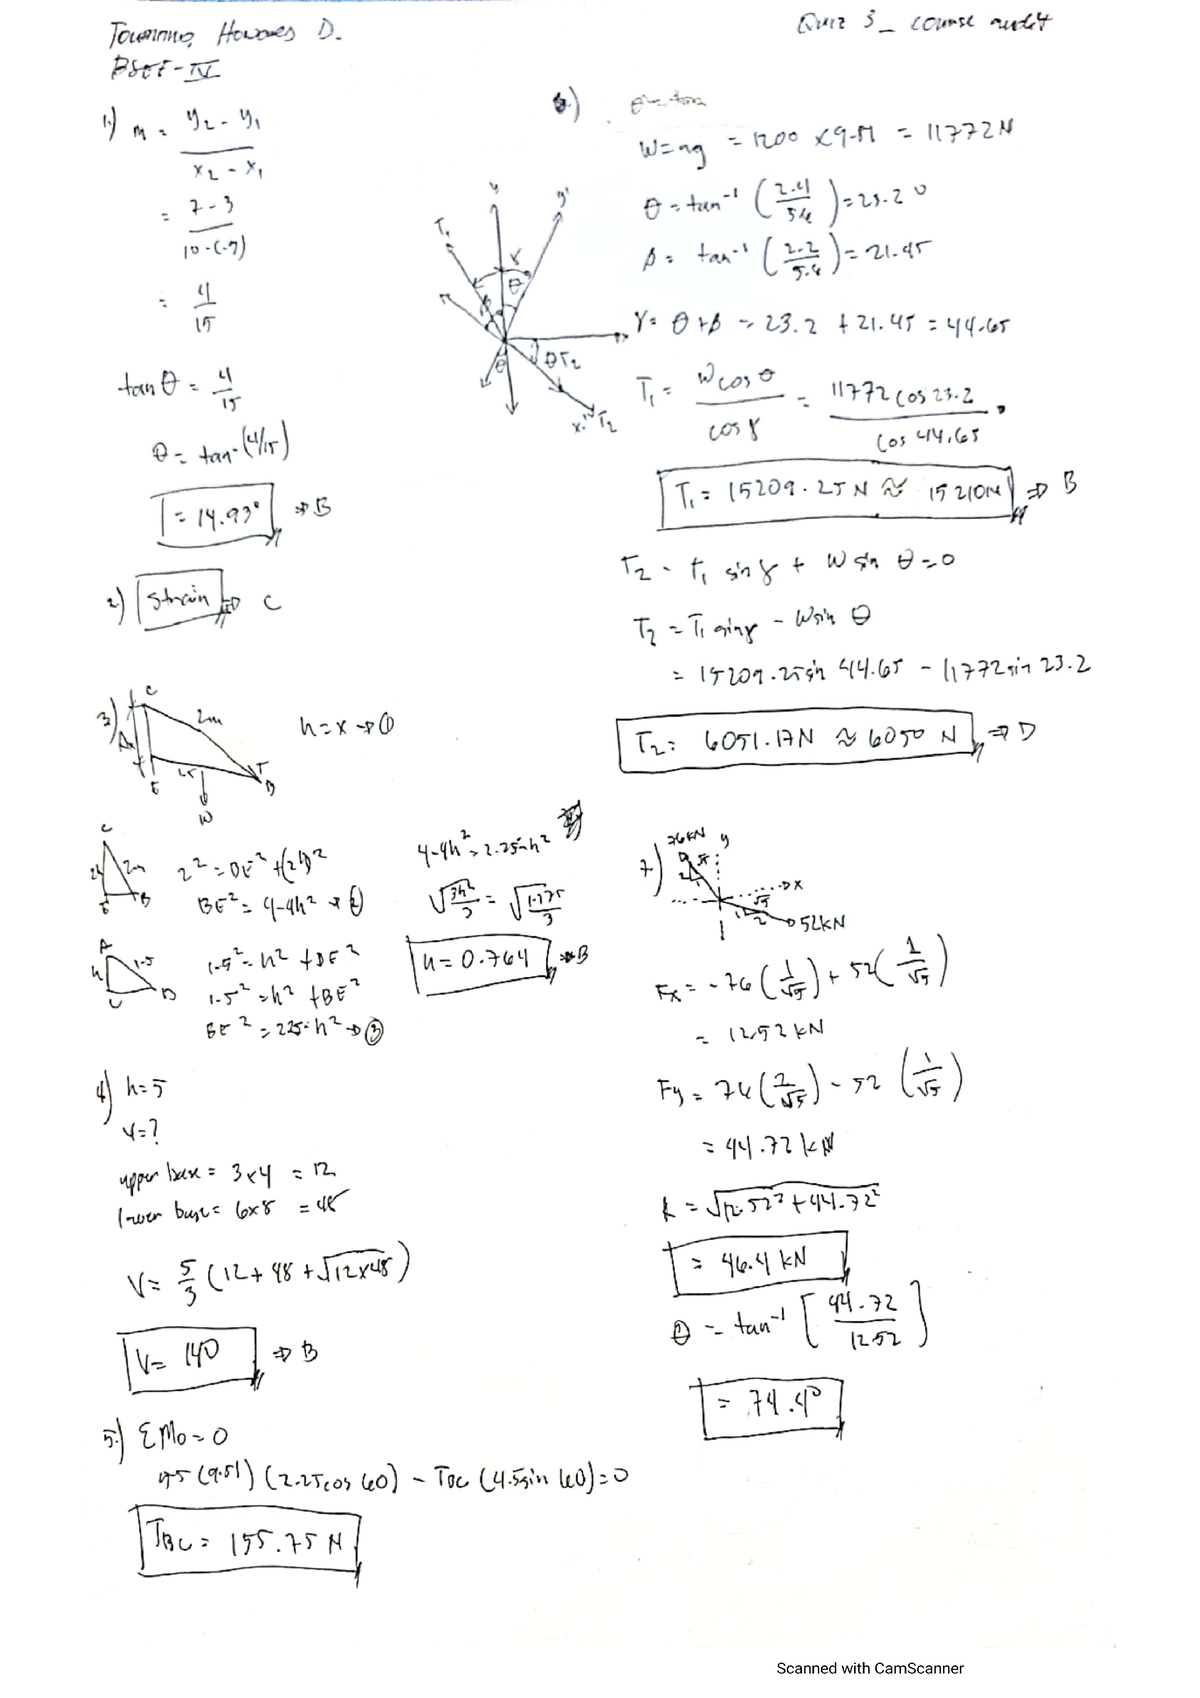 Howard D.
Quiz 3_ course audit
BSEE-IV
1.) m = y2 - y1
x2 - x1
= 7-3
10-(-5)
= 4
15
tan θ = 4
15
θ = tan-(4/15)
= 14.93° ⇒ B
2.) Strain ⇒ C
3.) C
2m
1.5
E
T
B
W
h = x → ①
C
2h
2m
E
B
2² = BE² + (2h)²
BE² = 4-4h² → ②
A
h
1.5
1.5² = h² + BE²
1.5² = h² + BE²
BE² = 2.25-h² → ③
4-4h² = 2.25-h²
√3h²/3 = √1.75/3
h = 0.764 ⇒ B
4) h = 5
V = ?
upper base = 3x4 = 12
lower base = 6x8 = 48
V = 5/3 (12 + 48 + √12x48)
V = 140 ⇒ B
5.) ΣMo = 0
(9.81) (2.25cos 60) - TBC (4.5sin 60) = 0
TBC = 155.75 N
6.)
W = mg = 1200 x 9.81 = 11772 N
θ = tan-1 (2.4/5.6) = 23.2°
β = tan-1 (2.2/5.6) = 21.45
γ = θ + β = 23.2 + 21.45 = 44.65
y
y'
T1
γ
θ
β
θ
θ T2
x'
T2
T1 = W cos θ = 11772 cos 23.2
cos γ
cos 44.65
T1 = 15209.25 N ≈ 15210N ⇒ B
T2 - T1 sin γ + W sin θ = 0
T2 = T1 sinγ - Wsin θ
= 15209.25sin 44.65 - 11772 sin 23.2
T2 = 6051.17N ≈ 6050 N ⇒ D
7.) 76kN y
√5
2
x
√5
1
2
52kN
Fx = -76 (1/√5) + 52(1/√5)
= 12.52 kN
Fy = 76 (2/√5) - 52 (1/√5)
= 44.72 kN
R = √12.52² + 44.72²
= 46.4 kN
θ = tan-1 [44.72/12.52]
= 74.4°
Scanned with CamScanner